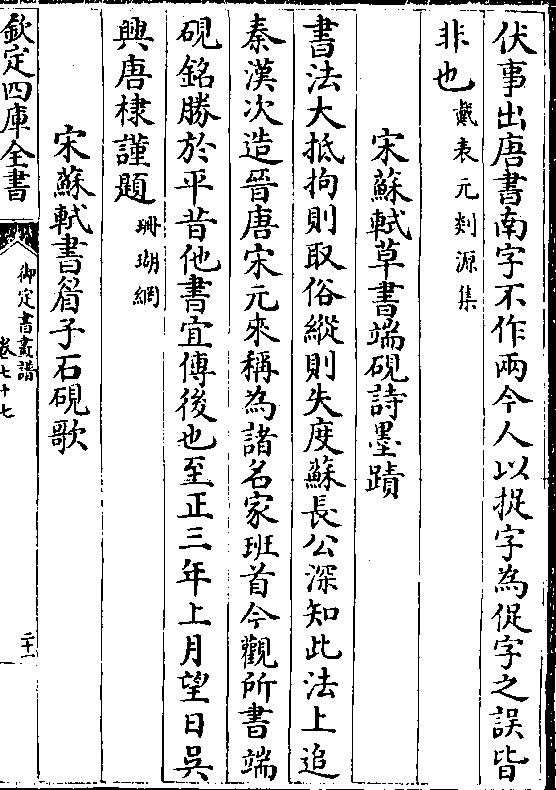 伏事出唐書南字不作兩今人以捉字為促字之誤皆
非也戴表元剡源集
宋蘇軾草書端硯詩墨蹟
書法大抵拘則取俗縱則失度蘇長公深知此法上追
秦漢次造晉唐宋元來稱為諸名家班首今觀所書端
硯銘勝於平昔他書宜傳後也至正三年上月望日吳
興唐棣謹題珊瑚網
宋蘇軾書眉子石硯歌
欽定四庫全書
御定書畫譜
卷七十七
二十一